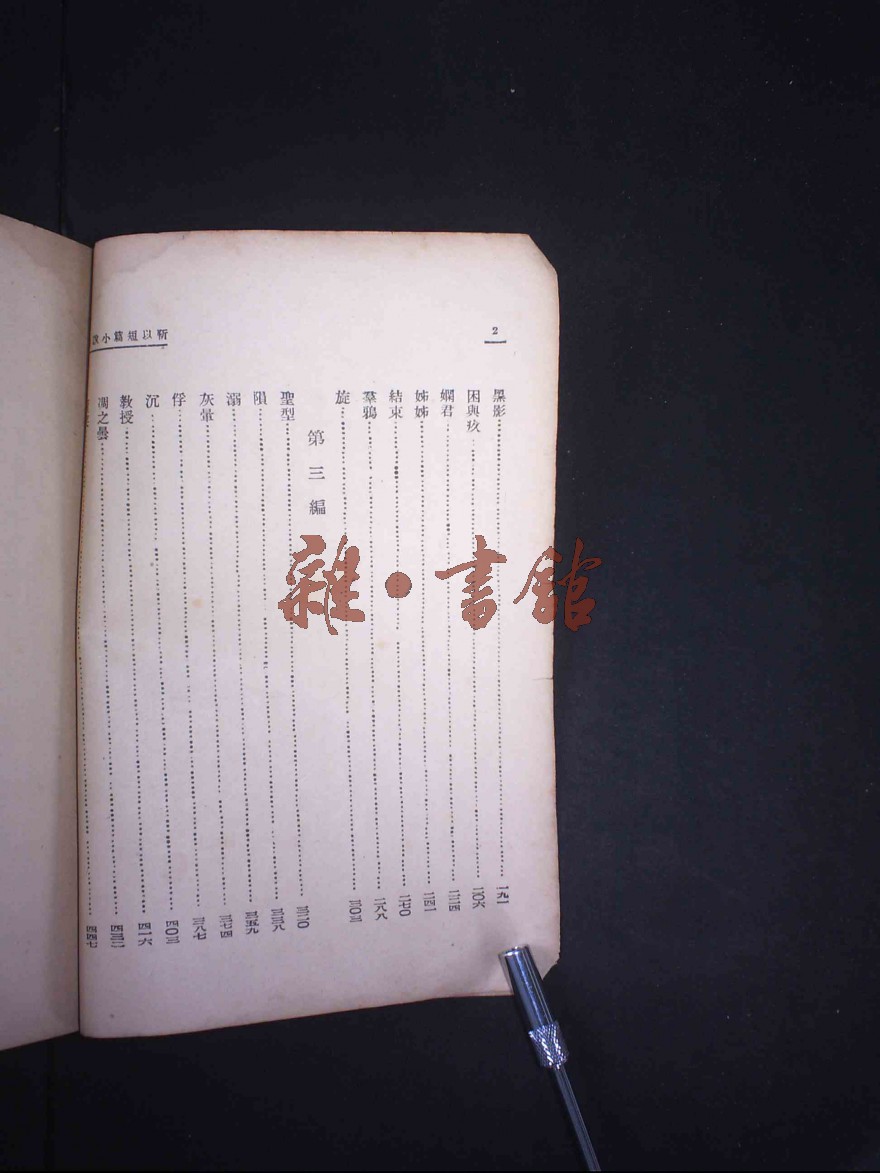 靳以短篇小說
2
黑影 一九一
困與疚 二〇六
嫻君 二二四
姊姊 二四一
結束 二七〇
羣鴉 二八八
旋 三〇三
第三編
聖型 三二〇
隕 三三八
溺 三五九
灰暈 三七四
俘 三八七
沉 四〇三
教授 四一六
凋之曇 四三二
四四七
雜·書館